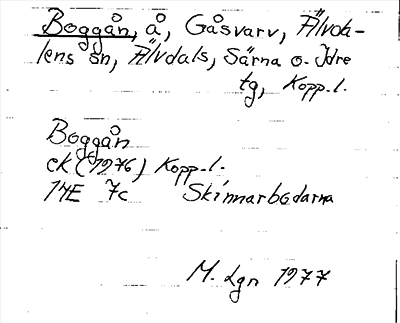 Boggån, å, Gåsvarv, Älvda-
lens sn, Älvdals, Särna o. Idre
tg, Kopp. l.
Boggån
ek (1976) Kopp. l.
14E 7c Skinnarbodarna
M. Lgn 1977